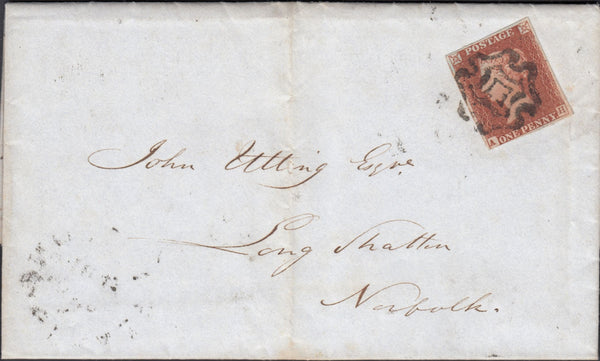 POSTAGE
A ONE PENNY
John Utting Esqre.
Long Shatton
Norfolk.